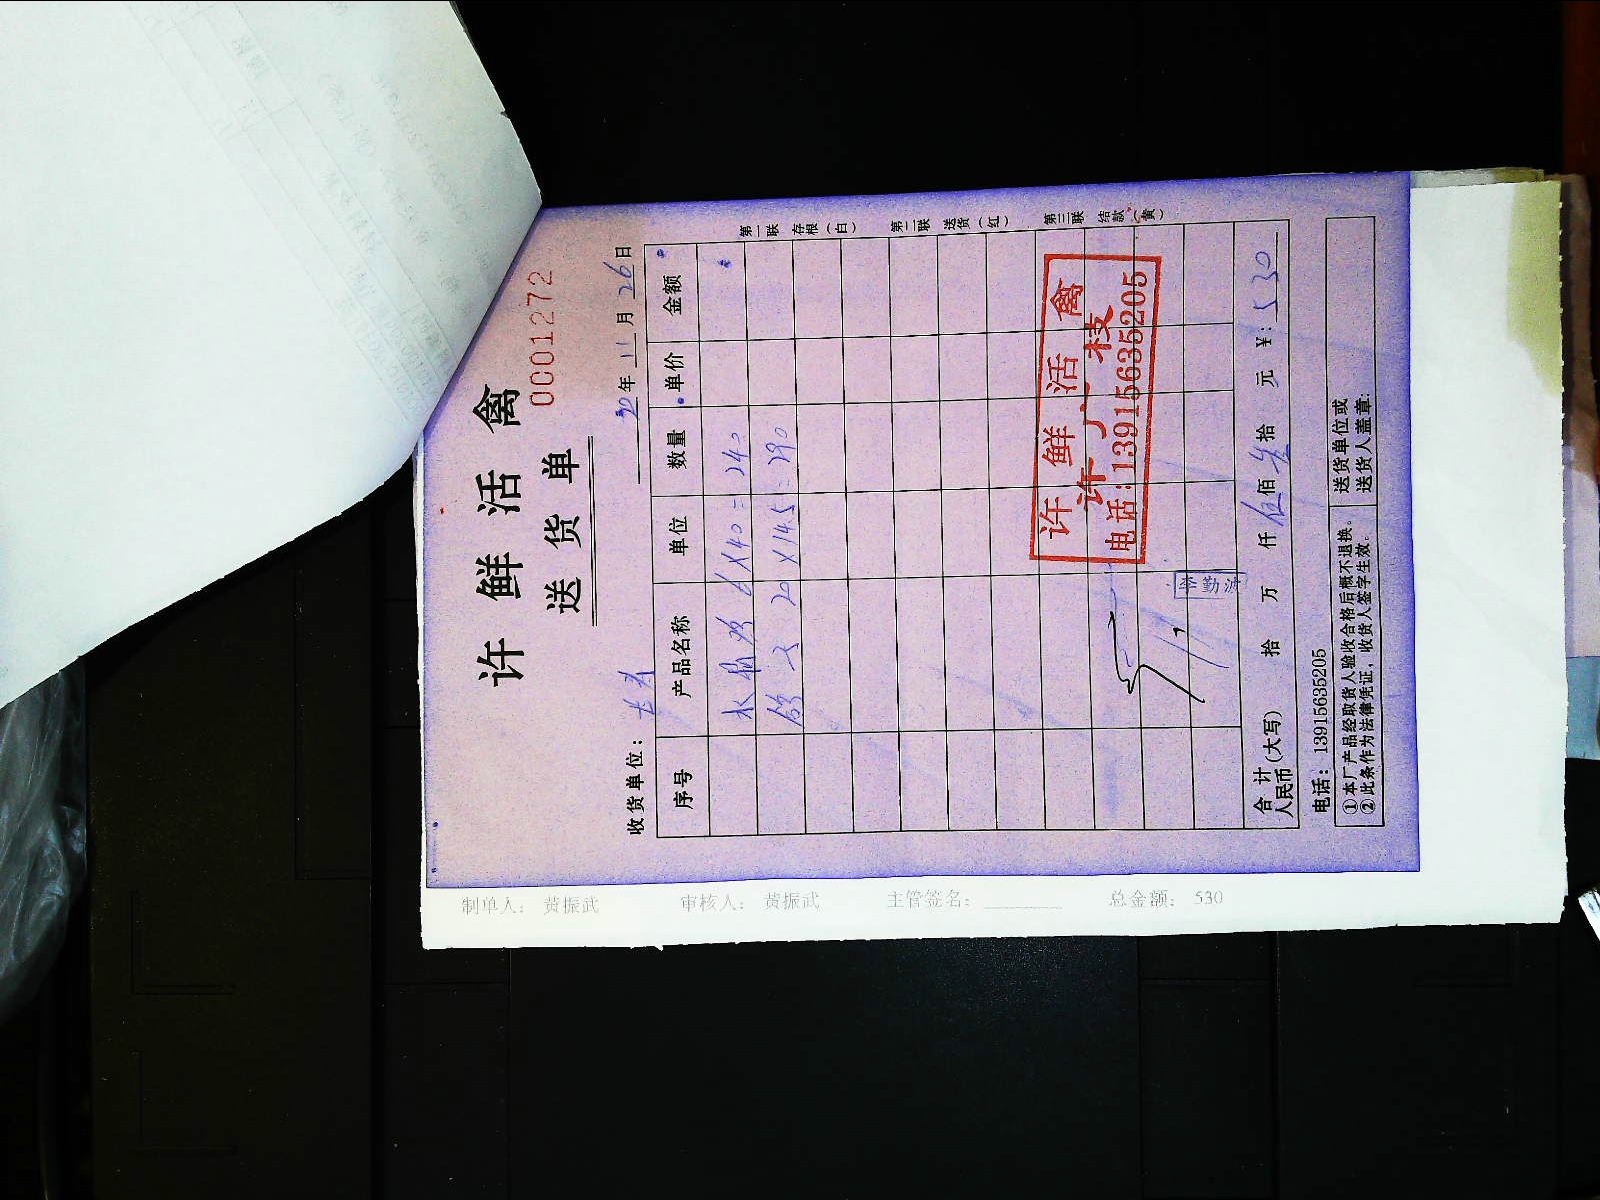 许鲜活禽
送货单
0001272
收货单位：
22年11月26日
序号 产品名称 单位 数量 单价 金额
6×40=240
20×14.5=290
第一联 存根（白）
第二联 送货（红）
第三联 结款（黄）
许鲜活禽
许广枝
电话:13915635205
李勤波
合计人民币(大写) 拾 万 仟 伍佰 叁拾 元 ¥:530
电话：13915635205
①本厂产品经取货人验收合格后概不退换。
②此条作为法律凭证，收货人签字生效。
送货单位或
送货人盖章:
制单人： 黄振武 审核人： 黄振武 主管签名： 总金额： 530